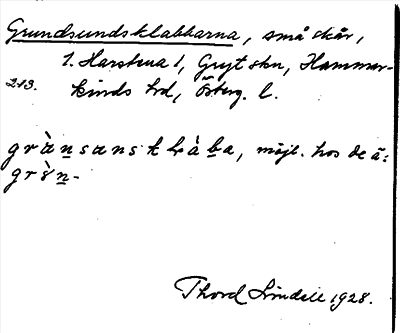 Grundsundsklabbarna, små skär,
1. Harstena 1, Gryt skn, Hammar-
213. kinds hd, Österg. l.
gràṉsansklàḇa, möjl. hos de ä:
Thord Lindell 1928.